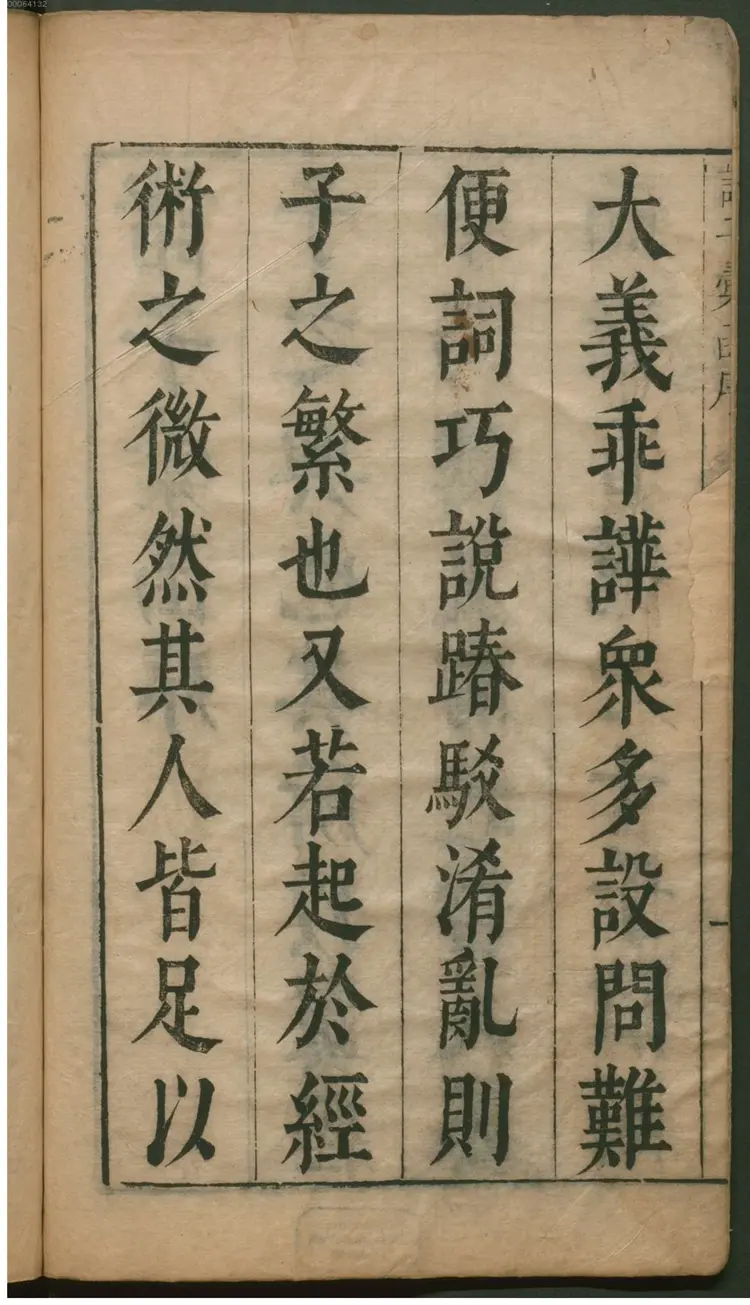 大義乖譁眾多設問難
便詞巧說踳駁淆亂則
子之繁也又若起於經
術之微然其人皆足以
00064132